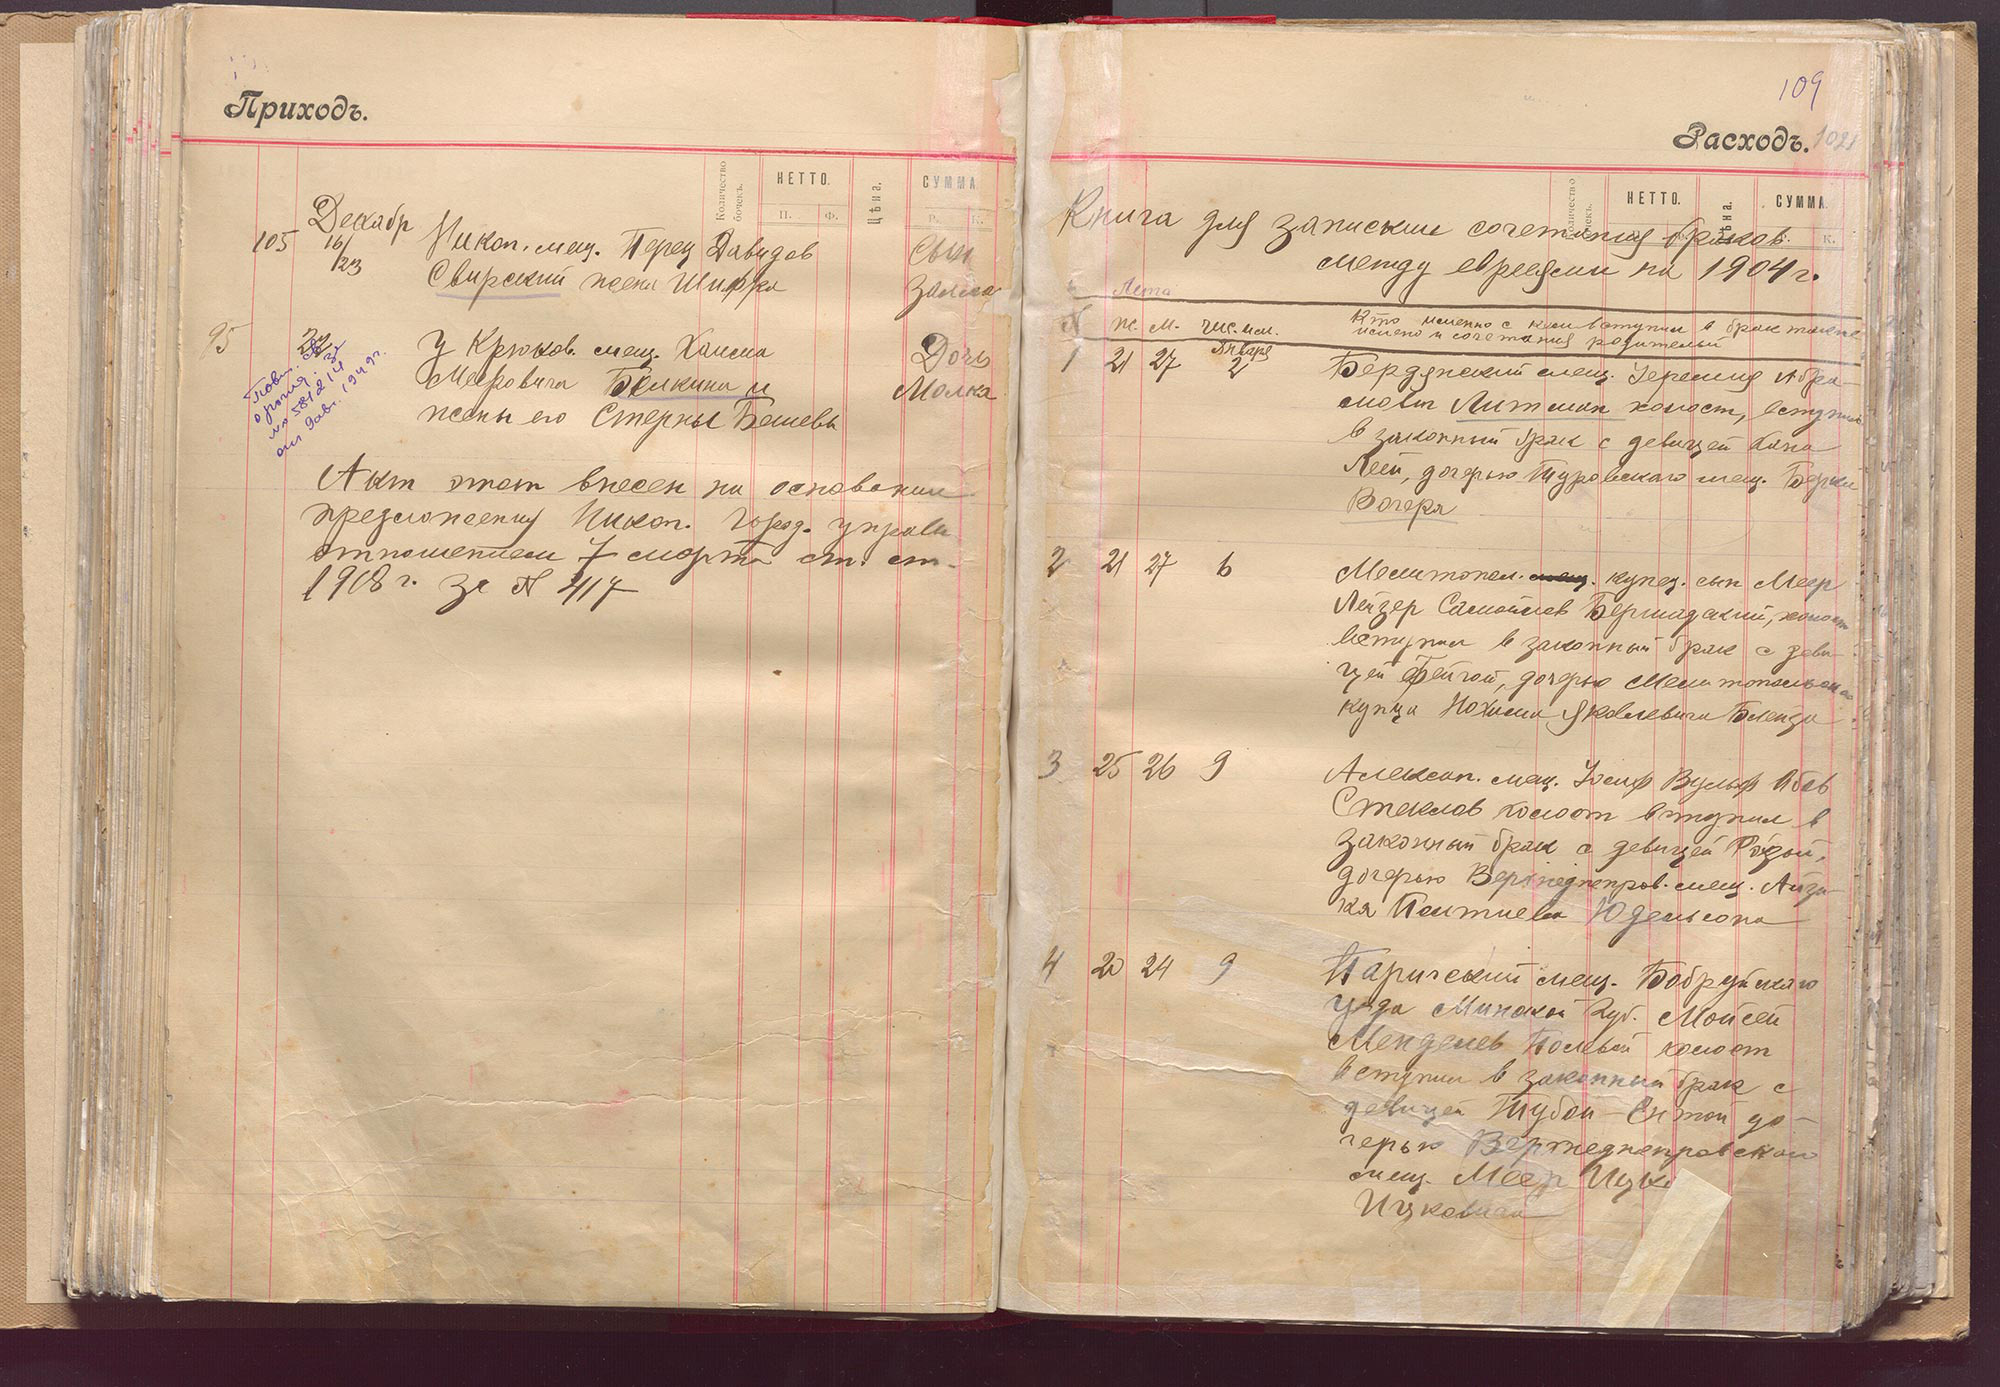 Приходъ.
Количество бочекъ.
НЕТТО.
П. Ф.
Цѣна.
СУММА
Р. К.
Декабр
105 16/23 Никоп. мещ. Перец Давидов Сын
Свирский жена Шифра Залман
95 22 У Крюков. мещ. Хаима Дочь
Мееровича Белкина и Малка
жены его Стерны Башевы
Повт.
№ 581214
1949г.
Акт этот внесен на основании
предложения Никоп. Город. управы
отношением 7 марта ст. ст.
1918 г. за № 417
109
Расходъ. 1021
НЕТТО.
СУММА.
К.
Книга для записки сочетания браков
между евреями на 1904 г.
Лета
№ Ж. М. Чис. м. Кто именно с кем вступил в брак также
имена и сочетания родителей
Января
1 21 27 2 Бердянский мещ. Иеремия Абра-
мович Литман холост, вступил
в законный брак с девицей Хана
Леей, дочерью Туровскаго мещ. Берки
Вагера
2 21 27 6 Мелитопол. мещ. купец. сын Меер
Лейзер Самойлов Бершадский, холост
вступил в законный брак с деви-
цей Фейгой, дочерью Мелитопольскаго
купца Нохима Яковлевича Бленда
3 25 26 9 Алексан. мещ. Иосиф Вульф Абов
Стеклов холост вступил в
законный брак с девицей Розой,
дочерью Верхнеднепров. мещ. Айзи-
ка Юдельсона
4 20 24 9 Паричский мещ. Бобруйскаго
уезда Минской Губ. Мойсей
Менделев Полевой холост
вступил в законный брак с
девицей Тубой-Ентой до-
черью Верхнеднепровскаго
мещ. Меер Ицко
Ицковича